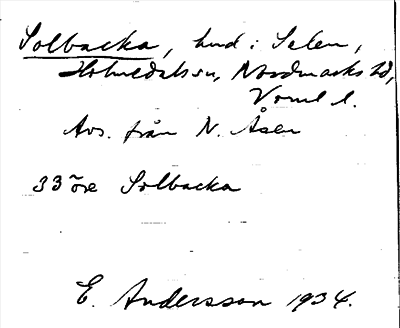 Solbacka, hmd i Salen,
Holmedals sn, Nordmarks hd,
Vrml l.
Avs. från N. Åsen
33 öre Solbacka
E. Andersson 1934.